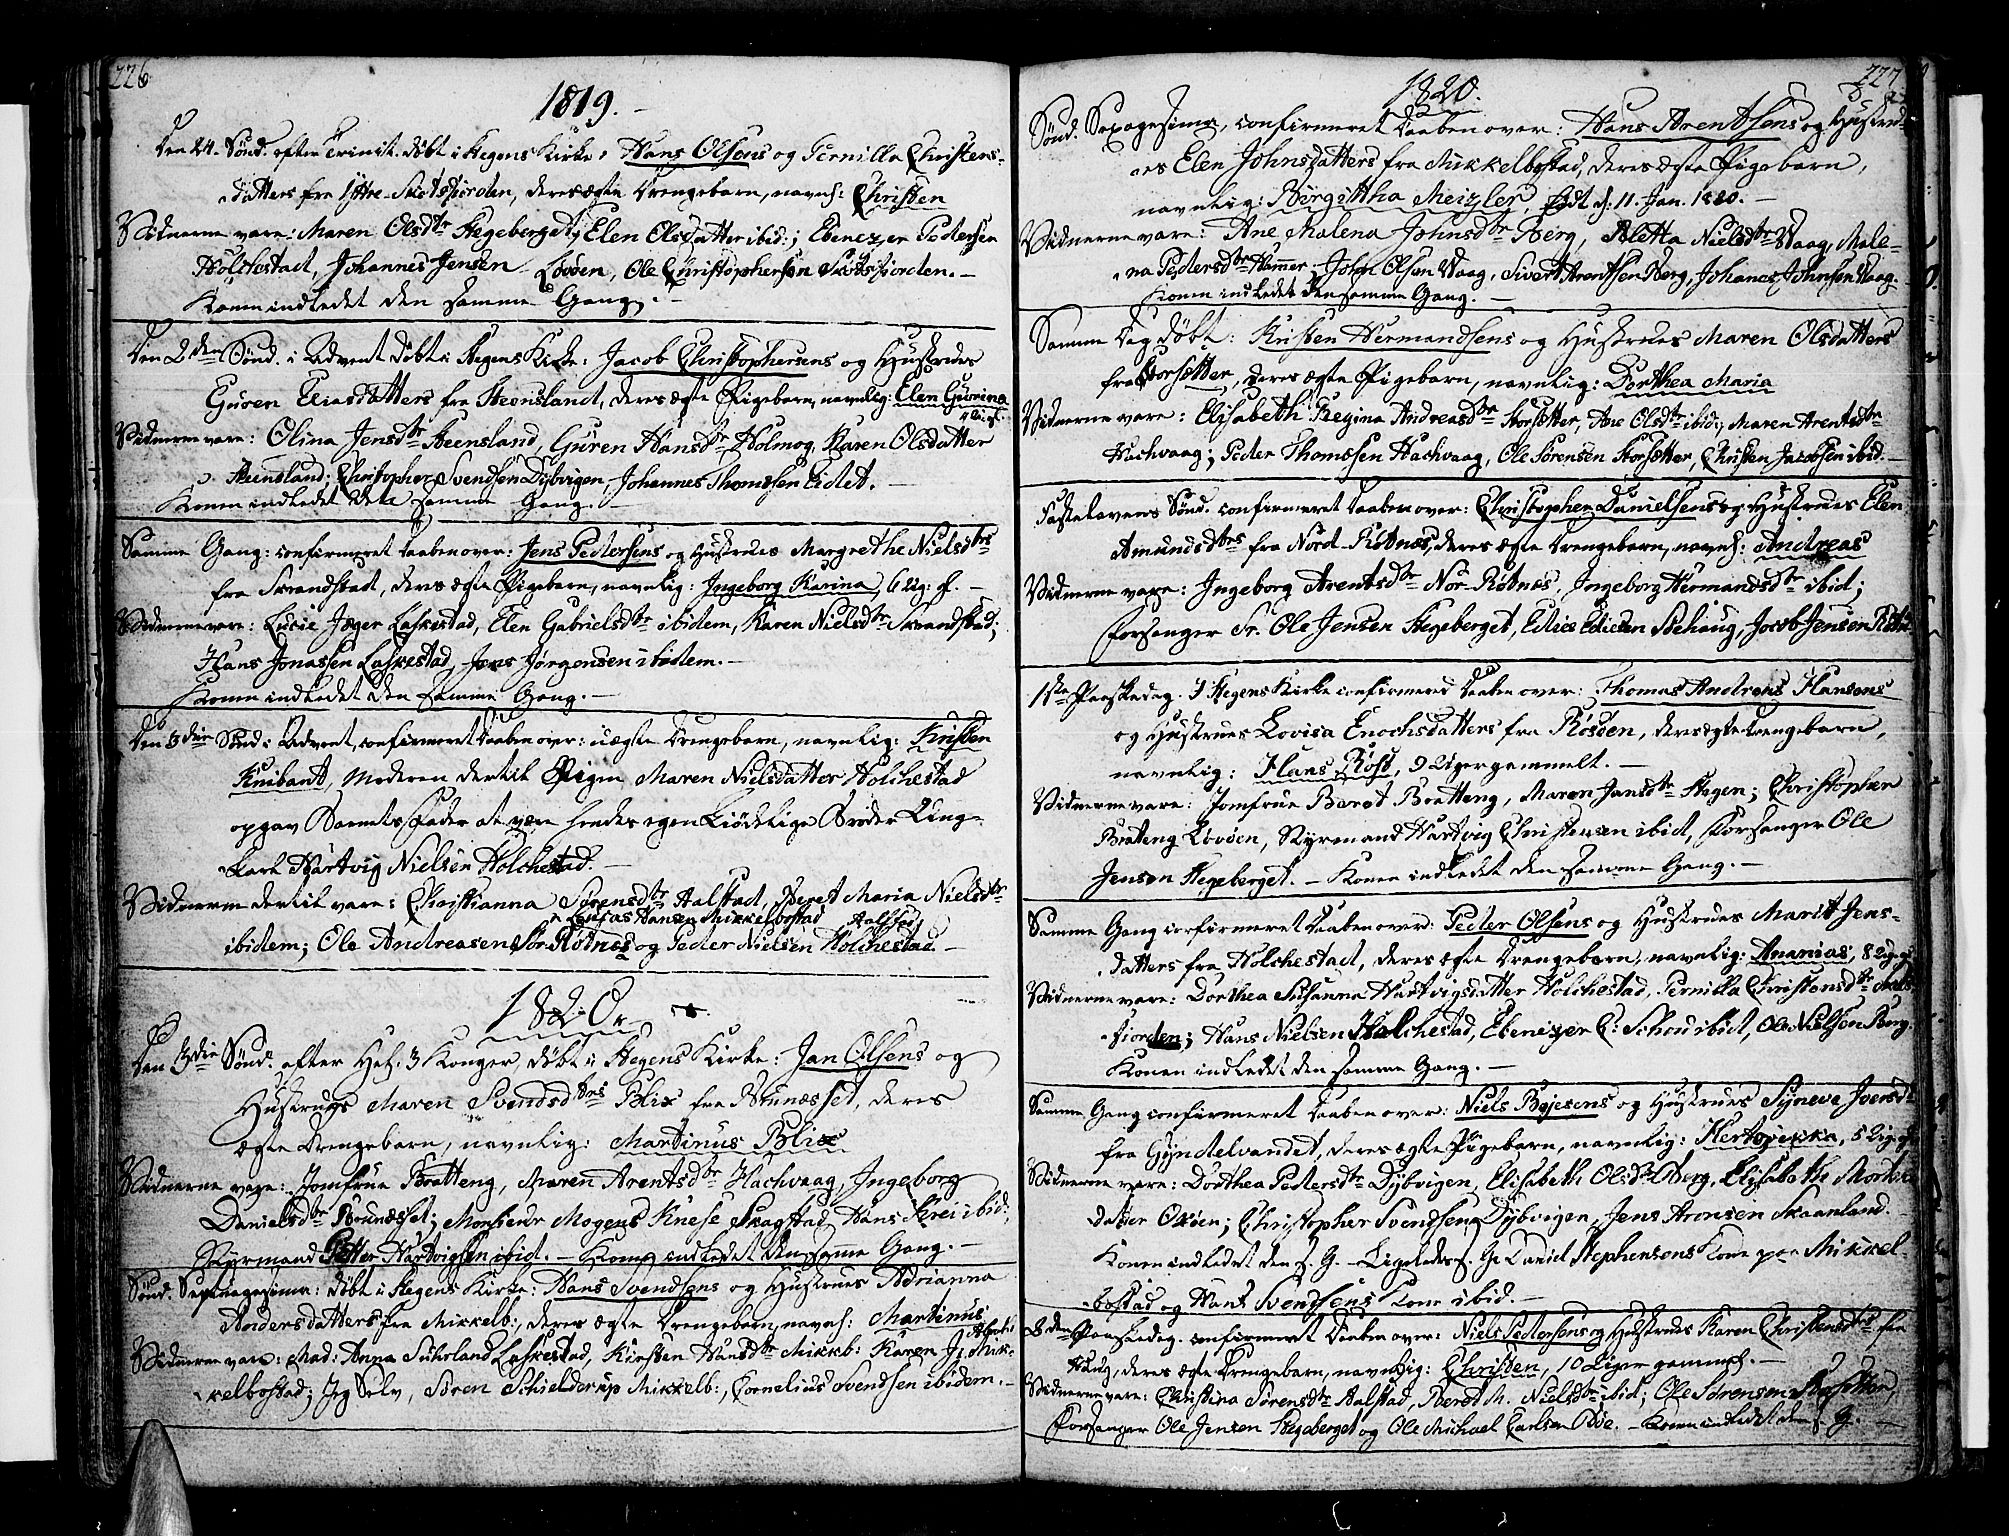 226
1819.
Den 24. Sønd. efter Trinit. døbt i Stegens Kirke: Hans Olsens og Pernilla Christens-
datters fra Yttre-Skotsfiorden, deres ægte Drengebarn, navnl: Christen
Vidnerne vare: Maren Olsdtr Stegeberget; Elen Olsdatter ibid:; Ebenezer Pedersen
Holchestad, Johannes Jensen Løvøen, Ole Christophersen Skotsfiorden.-
Konen indledet den samme Gang.-
Den 2den Sønd. i Advent døbt i Stegens Kirke: Jacob Christophersens og Hustrues
Guren Eliasdatters fra Steensland, deres ægte Pigebarn, navnlig: Elen Gurina
Vidnerne vare: Olina Jensdtr Steensland, Guren Hansdtr Holmog, Karen Olsdatter
Aunsland; Christopher Svendsen Dybvigen, Johannes Thomesen Eidet.-
Konen indledet dete samme Gang.-
Samme Gang: confirmeret Daaben over: Jens Pedersens og Hustrues Margrethe Nielsdtrs
fra Skrandstad, deres ægte Pigebarn, navnlig: Ingeborg Karina, 6 Ug: gl.-
Vidnerne vare: Lucie Jæger Laskestad, Elen Gabrielsdtr ibidem, Karen Nielsdtr Skrandstad;
Hans Jonassen Laskestad, Jens Jørgensen ibidem.-
Konen indledet den samme Gang.-
Den 3die Sønd: i Advent, confirmeret Daaben over: uægte Drengebarn, navnlig: Kristen
Knibant, Moderen dertil Pigen Maren Nielsdatter Holchestad
opgav Barnets Fader at være hendes egen Kiødelige Broder Ung-
karl Hartvig Nielsen Holchestad.-
Vidnerne dertil vare: Christianna Sørensdtr Aalstad, Beret Maria Nielsdtr
Lucas Hansen Mikkelbostad Aalstad
ibidem; Ole Andreasen Sør-Røtnes og Peder Nielsen Holchestad-
1820.
Den 3die Sønd. efter Hel. 3 Konger, døbt i Stegens Kirke: Jan Olsens og
Hustrues Maren Svendsdtrs Blix fra Brunæsset, deres
ægte Drengebarn, navnlig: Martinus Blix
Vidnerne vare: Jomfrue Bratteng, Maren Arentsdtr Hachvaag, Ingeborg
Danielsdtr Brunæsset; Monsieur Mogens Knese Skagstad, Hans Krei ibid:,
Styrmand Petter Hartvigsen ibid.- Konen indledet den samme Gang.-
Sønd. Septuagesima: døbt i Stegens Kirke: Hans Svendsens og Hustrues Adrianna
Andersdatters fra Mikkelb:, deres ægte Drengebarn, navnl: Martinus
Vidnerne vare: Mad: Anna Suhrland Laskestad, Kirsten Hansdtr Mikkb: Karen Js. Mik-
kelbostad; Jeg Selv, Søren Schielderup Mikkelb:, Cornelius Svendsen ibidem.-
227
1820.
Sønd. Sexagesima, confirmeret Daaben over: Hans Arentsens og Hustru-
es Elen Johnsdatters fra Mikkelbostad, deres ægte Pigebarn,
navnlig: Birgittha Meizler, født d. 11. Jan. 1820.-
Vidnerne vare: Ane Malena Johnsdtr Berg, Aletta Nielsdtr Vaag, Male-
na Pedersdtr Hammer, John Olsen Vaag, Sivert Arentsen Berg, Johanes Johnsen Vaag.
Konen indledet den samme Gang.-
Samme Dag døbt: Kristen Hermandsens og Hustrues Maren Olsdatters
fra Storsætter, deres ægte Pigebarn, navnlig: Dorthea Maria
Vidnerne vare: Elisabeth Regina Andreasdtr Storsætter, Ane Olsdtr ibid:, Maren Arentsdtr
Hachvaag; Peder Thomesen Hachvaag, Ole Sørensen Storsætter, Christen Jacobsen ibid.-
Fastelavens Sønd. confirmeret Daaben over: Christopher Danielsens og Hustrues Elen
Amundsdtrs fra Nord-Røtnes, deres ægte Drengebarn, navnl: Andreas
Vidnerne vare: Ingeborg Arentsdtr Nor-Røtnes, Ingeborg Hermandsdtr ibid;
Forsanger Sr. Ole Jensen Stegeberget, Edies Ediesen Stehaug, Jacob Jensen Røtn
1ste Paaskedag. I Stegens Kirke confirmered Daaben over: Thomas Andreas Hansens
og Hustrues Lovisa Enochsdatters fra Rosøen, deres ægte Drengebarn,
navnlig: Hans Rost, 9 Uger gammelt.-
Vidnerne vare: Jomfrue Beret Bratteng, Maren Jansdtr Stegen; Christopher
Brateng Løvøen, Styrmand Hartvig Christensen ibid, Forsanger Ole
Jensen Stegeberget.- Konen indledet den samme Gang.-
Samme Gang confirmeret Daaben over: Peder Olsens og Hustrues Marit Jens-
datters fra Holchestad, deres ægte Drengebarn, navnlig: Ananias, 8 Ug. gl
Vidnerne vare: Dorthea Susanna Hartvigsdatter Holchestad, Pernilla Christensdtr Skots-
fiorden; Hans Nielsen Holchestad, Ebenezer P: Schou ibid, Ole Nielsen Berg.
Konen indledet den samme Gang.-
Samme Gang confirmeret Daaben over: Niels Bojesens og Hustrues Syneva Iversdtr
fra Gyndelvandet, deres ægte Pigebarn, navnlig: Hertovikka, 5 Ug. gl
Vidnerne vare: Dorthea Pedersdtr Dybvigen, Elisabeth Olsdtr Berg, Elisabeth Morten-
datter Oxøen; Christopher Svendsen Dybvigen, Jens Aronsen Skaanland.
Konen indledet den s. G.- Ligeledes s. G. David Stephensens Kone paa Mikkel-
bostad og Hans Svendsens Kone ibid.-
2den Paaskedag. confirmeret Daaben over: Niels Pedersens og Hustrues Karen Christensdtrs fra
Haug, deres ægte Drengebarn, navnlig: Christen, 10 Uger gammel.-
Vidnerne vare: Christina Sørensdtr Aalstad, Beret M. Nielsdtr ibid; Ole Sørensen Storsætter,
Forsanger Ole Jensen Stegeberget og Ole Michael Carlsen Bøe.- Konen indledet den s. G.